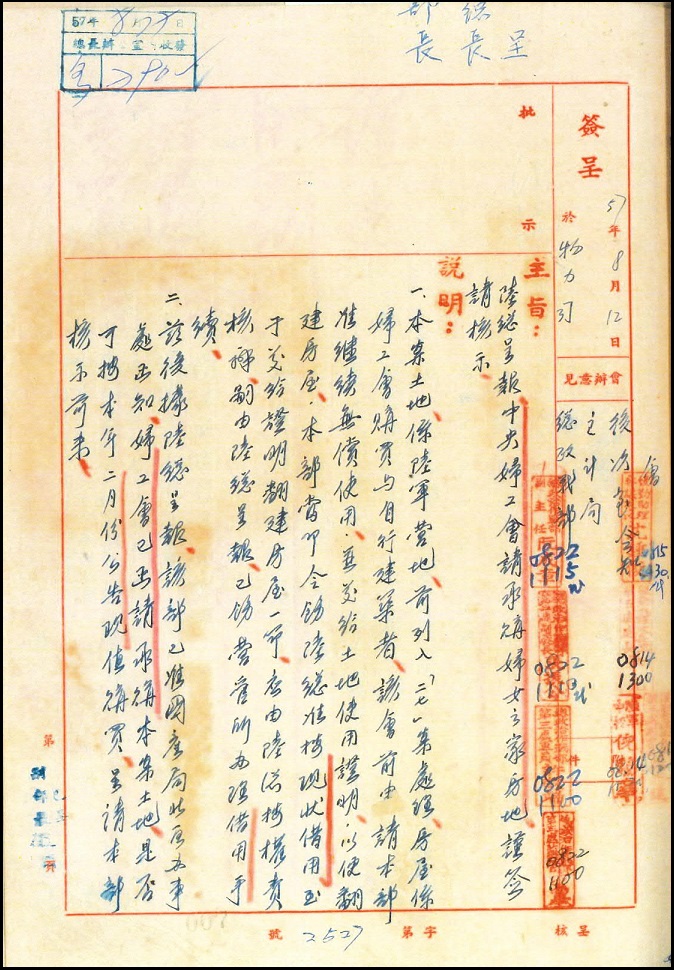 呈
總長
部長
57年8月 日
總長辦公室收發
簽呈
57年8月12日
於物力司
會辦意見
後次室
主計局
總政戰部
批示
主旨：
陸總呈報中央婦工會請承購婦女之家房地謹簽
請核示
說明：
一、本案土地係陸軍營地前列入「二七」案處理房屋係
婦工會購買与自行建築者、該會前由請本部
准繼續無償使用並發給土地使用證明、以便翻
建房屋、本部當即令飭陸總准按現狀借用至
于發給證明翻建房屋一節應由陸總按權責
核辦嗣由陸總呈報已飭營管所办理借用手
續、
二、茲後據陸總呈報、該部已准國產局北區办事
處函知、婦工會已函請承購本案土地、是否
可按本年二月份公告現值購買、呈請本部
核示前來、
0815
1430
0814
1300
0822
1115
0822
1110
0822
1100
0822
1100
第 件
第 頁
核呈
字第2527號